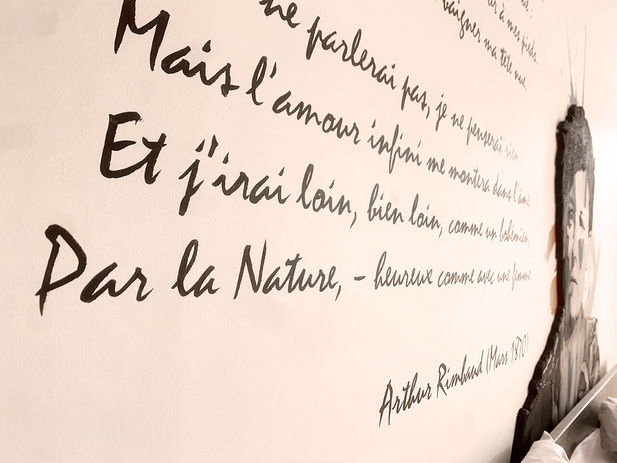 r à mes pieds.
baigner ma tête nue.
ne parlerai pas, je ne penserai rien :
Mais l'amour infini me montera dans l'âme
Et j'irai loin, bien loin, comme un bohémien,
Par la Nature, – heureux comme avec une femme
Arthur Rimbaud (Mars 1870)